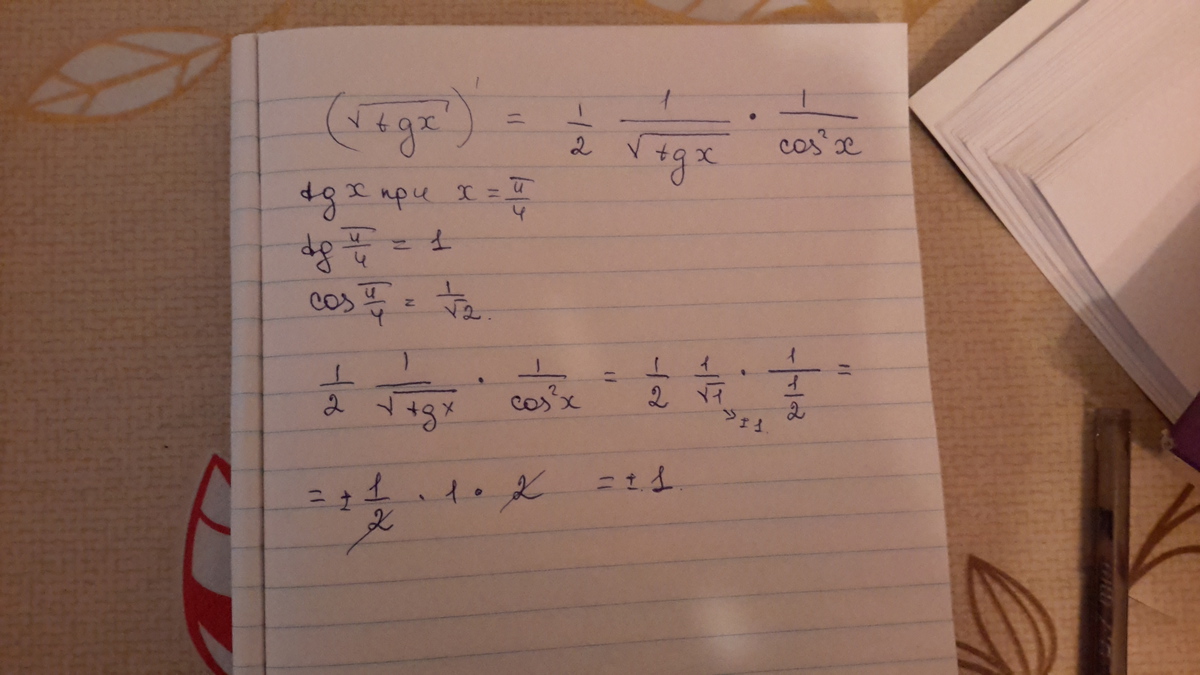 (√tgx)' = 1/2 1/√tgx · 1/cos²x
tg x при x = π/4
tg π/4 = 1
cos π/4 = 1/√2.
1/2 1/√tgx · 1/cos²x = 1/2 1/√1 · 1/(1/2) =
±1.
= ± 1/2 · 1 · 2 = ± 1.